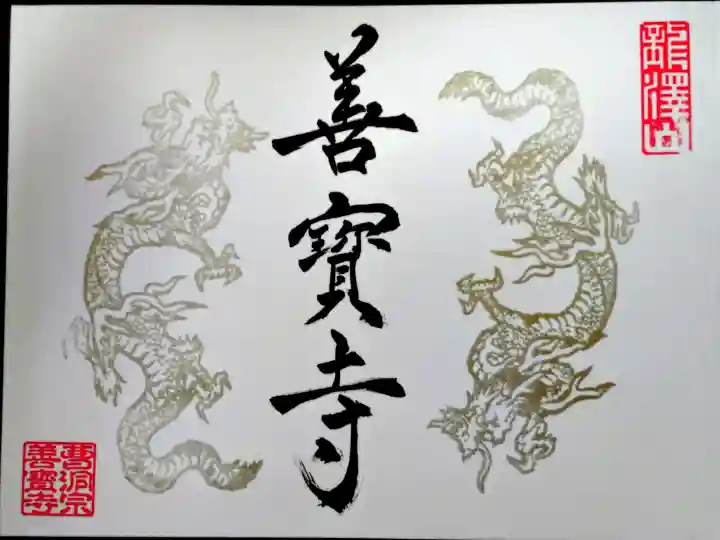 龍澤山
善寶寺
曹洞宗
善寳寺